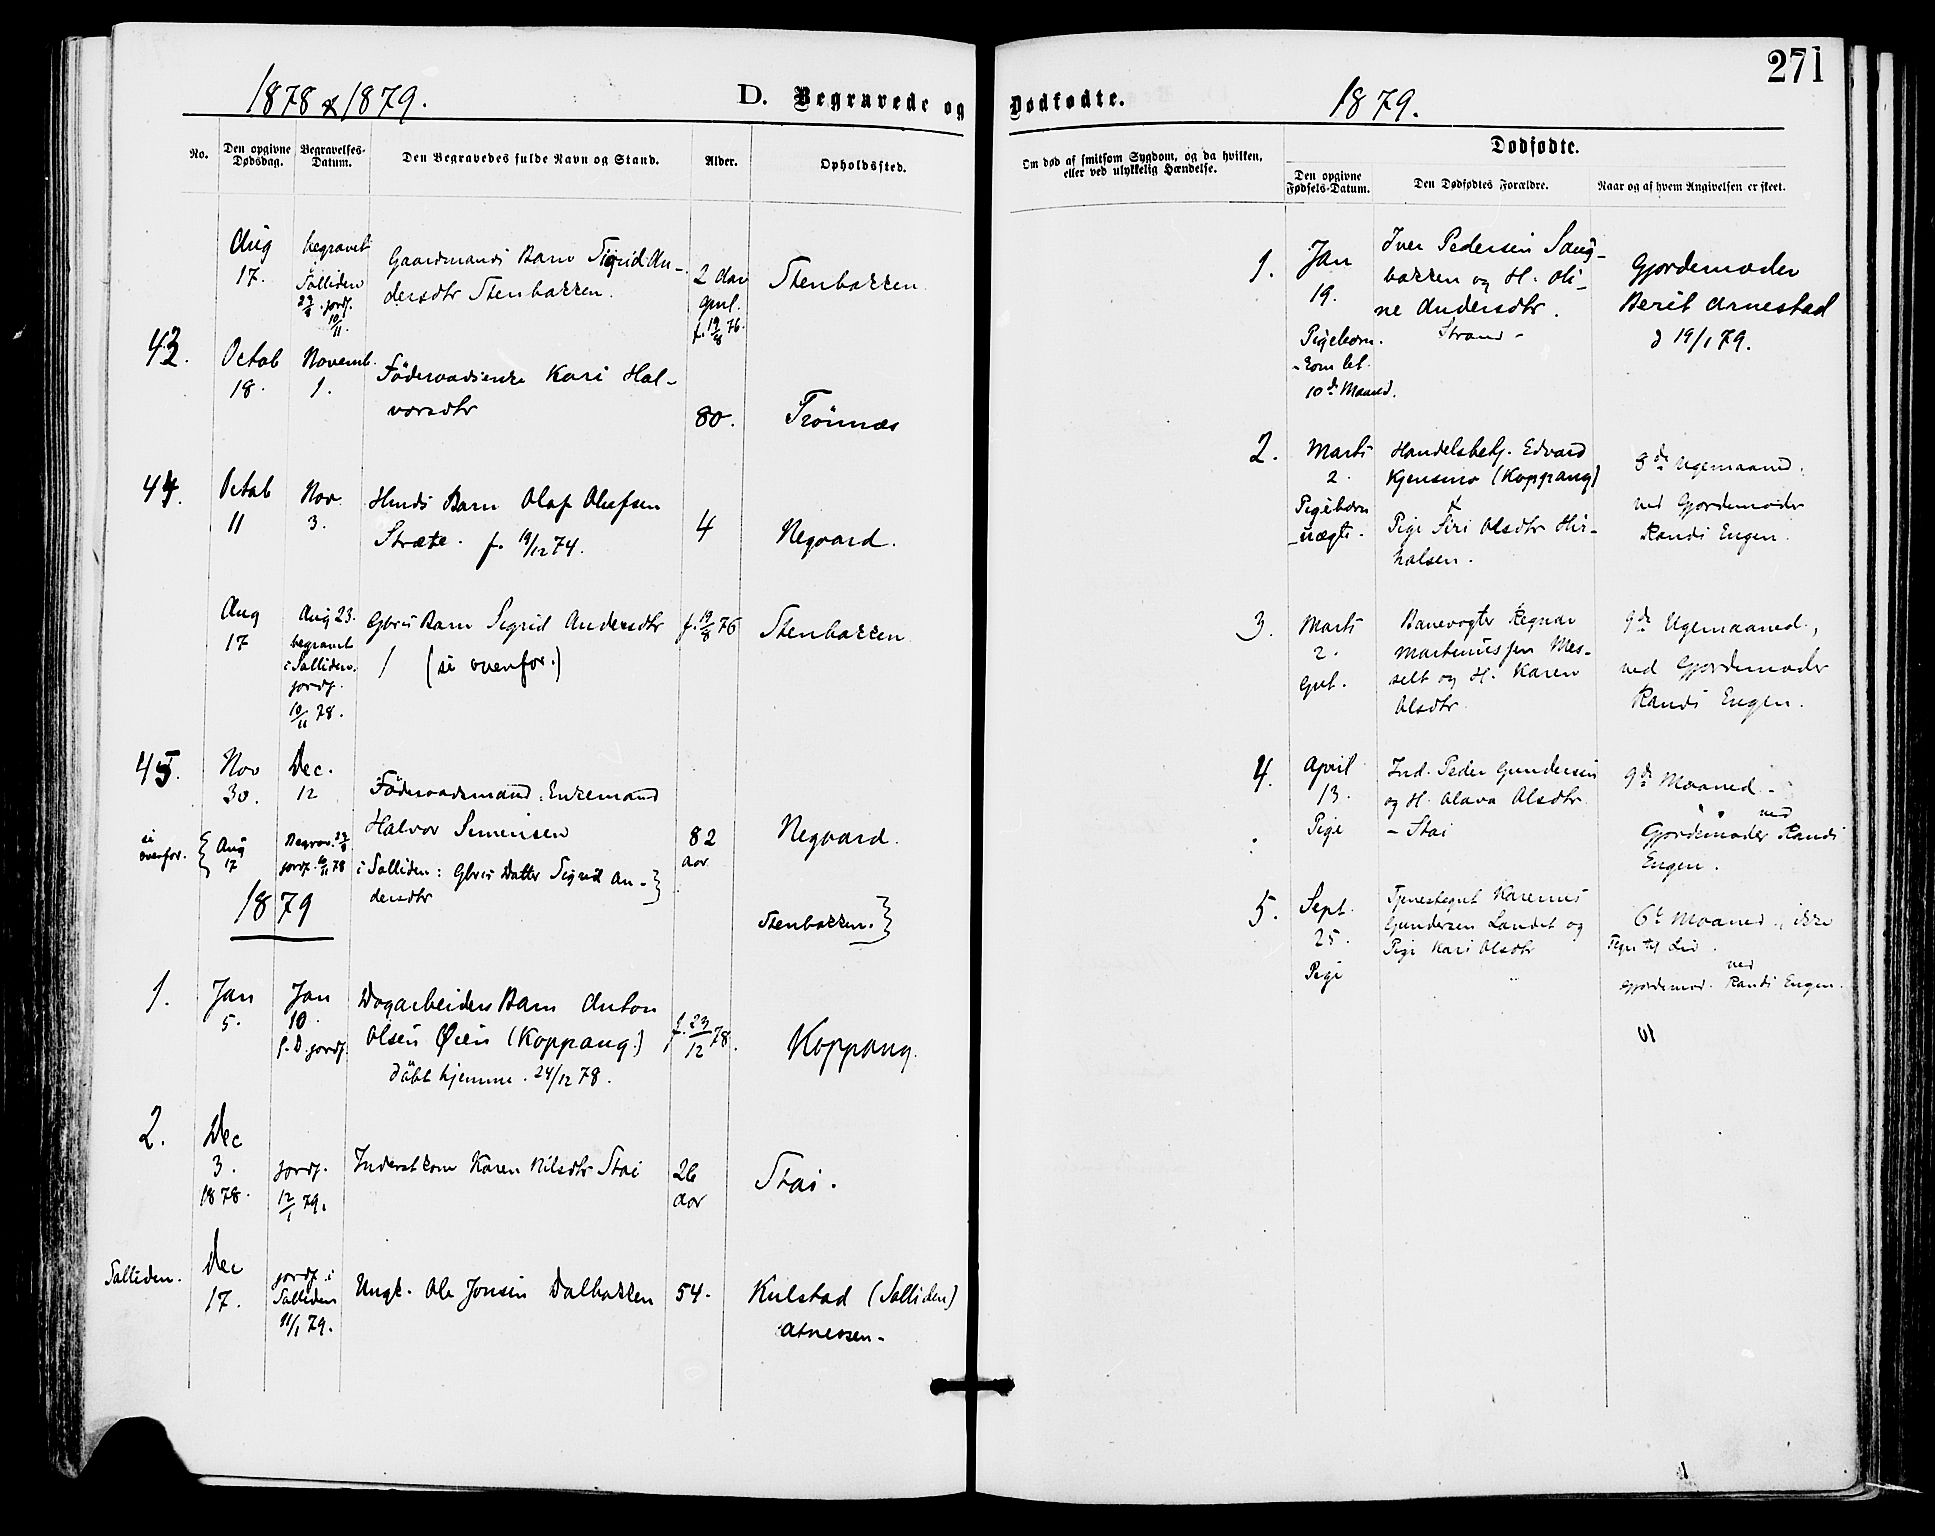 271
1878 & 1879.
D. Begravede og Dødfødte.
1879.
No.
Den opgivne Dødsdag.
Begravelses-Datum.
Den Begravedes fulde Navn og Stand.
Alder.
Opholdssted.
Om død af smitsom Sygdom, og da hvilken,
eller ved ulykkelig Hændelse.
Dødfødte.
Den opgivne Fødsels-Datum.
Den Dødfødtes Forældre.
Naar og af hvem Angivelsen er skeet.
Aug
17.
begravet
Solliden
jordf.
10/11.
Gaardmands Barn Sigrid An-
dersdtr Stenbakken.
2 Aar
gml.
f. 19/8 76.
Stenbakken
43.
Octob
18.
Novemb.
1.
Föderaadsenke Kari Hal-
vorsdtr
80.
Trönnæs
44.
Octob
11
Nov.
3.
Hmds Barn Olaf Olufsen
Stræte. f. 19/12 74.
4
Negaard.
Aug
17
Aug 23.
begravet
i Solliden.
jordf.
10/11 78.
Gbrs Barn Sigrid Andersdtr
/ (se ovenfor.)
f. 19/8 76
Stenbakken
45.
Nov
30.
Dec.
12
Föderaadsmand. Enkemand
Halvor Simensen
82
aar
Negaard.
se
ovenfor.
Aug
17
Begrav. 23/8
jordf. 10/11 78
i Solliden: Gbrs Datter Sigrid An-
dersdtr
Stenbakken.
1879
1.
Jan
5.
Jan
10.
S. D. jordf.
Dagarbeiders Barn Anton
Olsen Øien (Koppang.)
döbt hjemme. 24/12 78.
f. 23/12 78.
Koppang.
2.
Dec
3.
1878.
jordf.
12/1 79.
Inderstkone Karen Nilsdtr Stai
26
aar
Stai.
Solliden.
Dec
17.
jordf. i
Solliden
11/1 79.
Ungk. Ole Jonsen Dalbakken
54.
Kulstad (Solliden)
Atneosen.
1.
Jan
19.
Pigebarn.
10de Maaned.
Iver Pedersen Saug-
bakken og H. Oli-
ne Andersdtr.
Strand -
Gjordemoder
Berit Arnestad
d 19/1 79.
2.
Marts
2.
Pigebarn
uægte.
Handelsbetj. Edvard
Kjensmo (Koppang)
&
Pige Siri Olsdtr Hir-
kolsen.
8de Ugemaaned.
ved Gjordemoder
Randi Engen.
3.
Marts
2.
Gut.
Banevogter Regnar
Martinussen Mes-
selt og H. Karen
Olsdtr
9de Ugemaaned,
ved Gjordemoder
Randi Engen.
4.
April
13.
Pige
Ind. Peder Gundersen
og H. Olava Olsdtr
- Stai
9de Maaned -
ved
Gjordemoder Randi
Engen.
5.
Sept.
25.
Pige
Tjenestegut Karenus
Gundersen Landet og
Pige Kari Olsdtr
6te Maaned., ikke
Tegn til Liv.
ved
Gjordemod. Randi Engen.